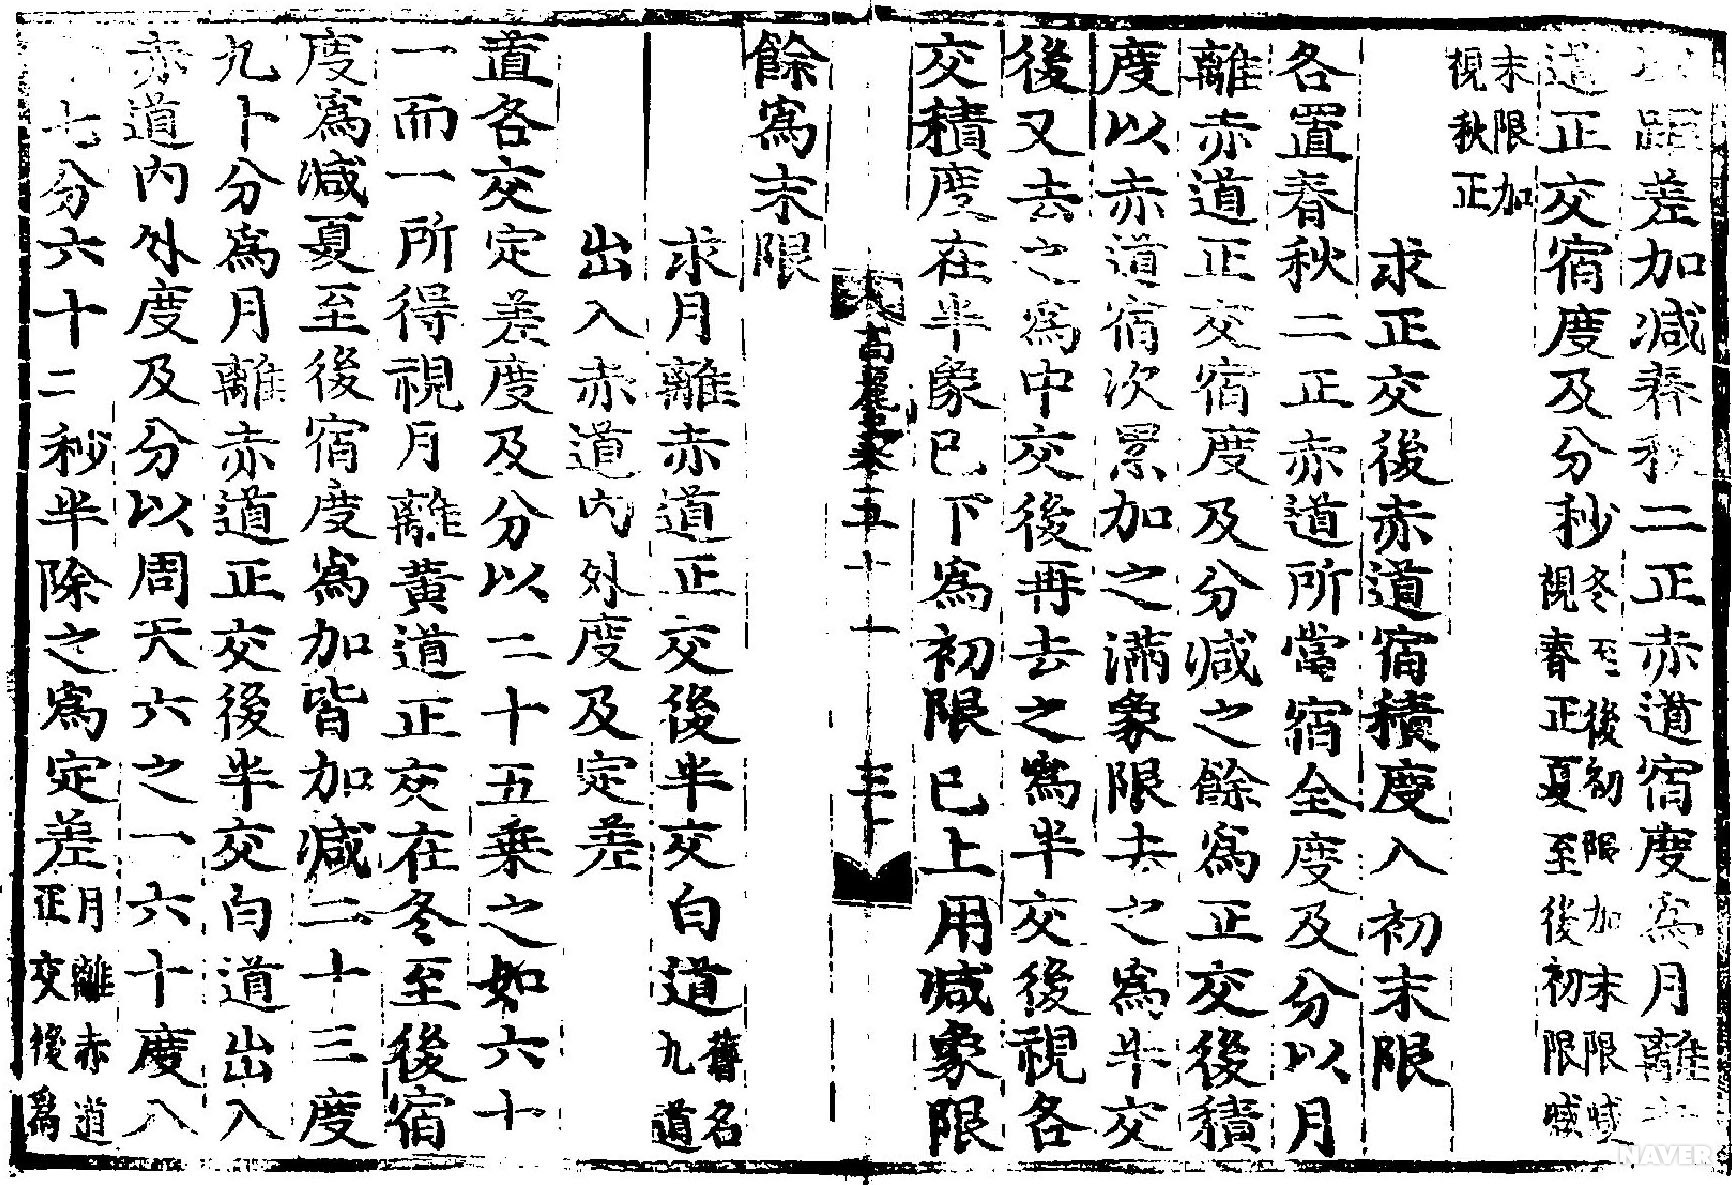 距差加減春秋二正赤道宿度爲月離
道正交宿度及分秒冬至後初限加末限減
視春正夏至後初限減
末限加
視秋正
求正交後赤道宿積度入初末限
各置春秋二正赤道所當宿全度及分以月
離赤道正交宿度及分減之餘爲正交後積
度以赤道宿次累加之滿象限去之爲半交
後又去之爲中交後再去之爲半交後視各
交積度在半象已下爲初限已上用減象限
高麗史卷五十一
三十
餘爲末限
求月離赤道正交後半交白道舊名
九道
出入赤道內外度及定差
置各交定差度及分以二十五乗之如六十
一而一所得視月離黃道正交在冬至後宿
度爲減夏至後宿度爲加皆加減二十三度
九十分爲月離赤道正交後半交白道出入
赤道內外度及分以周天六之一六十度八
七分六十二秒半除之爲定差月離赤道
正交後爲